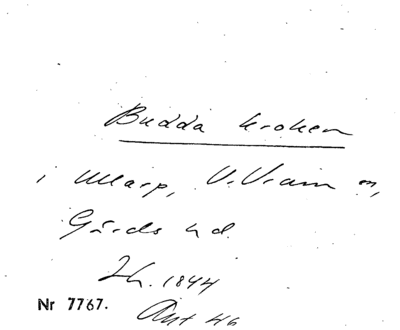 Budda kroken
i Ullarp, V. Vram sn,
Gärds hd.
Ih. 1844
Nr 7767.
Ant 46